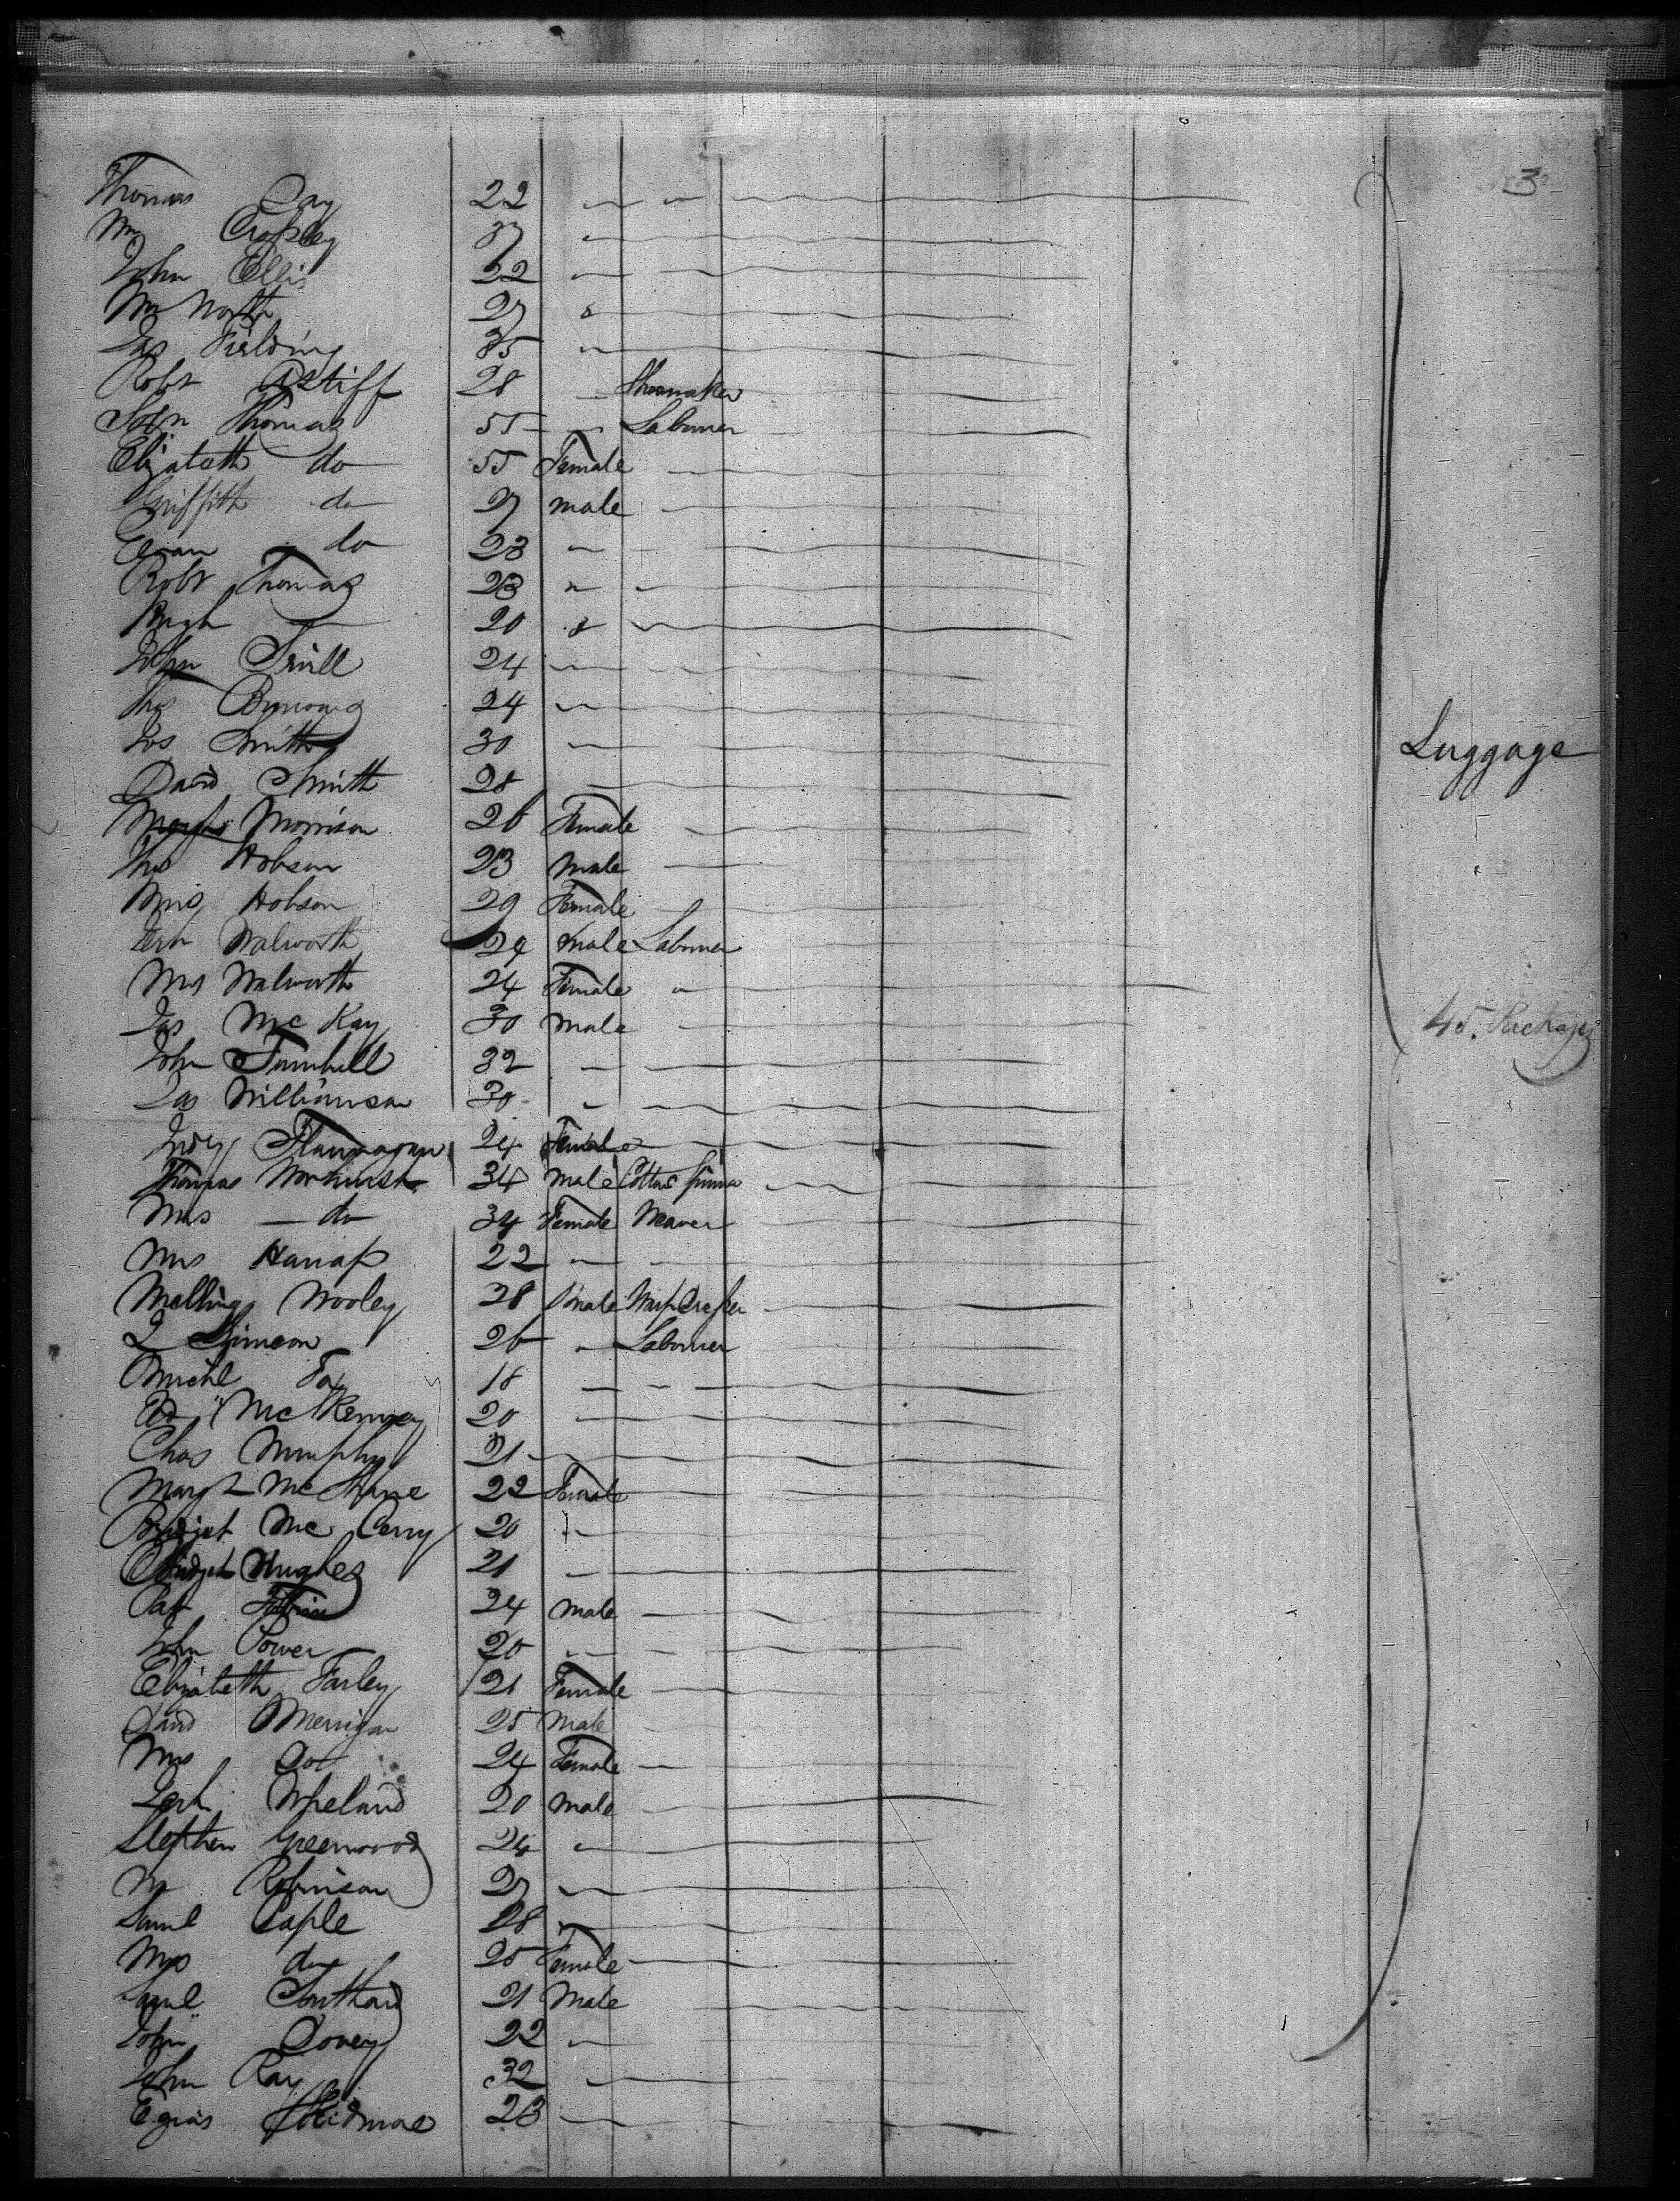 32
Thomas Day 22
Wm Cropley 37
John Ellis 22
Wm North 27
Jas Fielding 35
Robt Astiff 28 Shoemaker
John Thomas 55 Labourer
Elizabeth do 55 Female
Griffith do 27 male
Evan do 23
Robt Thomas 23
Hugh 20
John 24
Thos 24
Jos Smith 30
David Smith 28
Morrison 26 Female
Thos Hobson 23 Male
Mrs Hobson 29 Female
Walworth 24 Male Labourer
Mrs Walworth 24 Female
Jas McKay 30 Male
John Turnbull 32
Jas Williamson 30
Flannagan 24 Female
Thomas 34 Male Cotton Spinner
Mrs do 34 Female Weaver
Mrs Harrap 22
Melling Wooley 28 Male Warpdresser
J Simeon 26 Labourer
Michl Fox 18
Ed McKenney 20
Chas Murphy 21
Margt McShane 22 Female
Bridget Mc 20
Bridget Hughes 21
Pat 24 Male
John Power 20
Elizabeth Farley 21 Female
David Merrigan 25 Male
Mrs Do 24 Female
20 Male
Stephen Greenwood 24
Wm Robinson 27
Saml Caple 28
Mrs do 25 Female
Saml Southard 21 Male
John Dovey 22
John Ray 32
Skidmore 23
Luggage
45. Packages